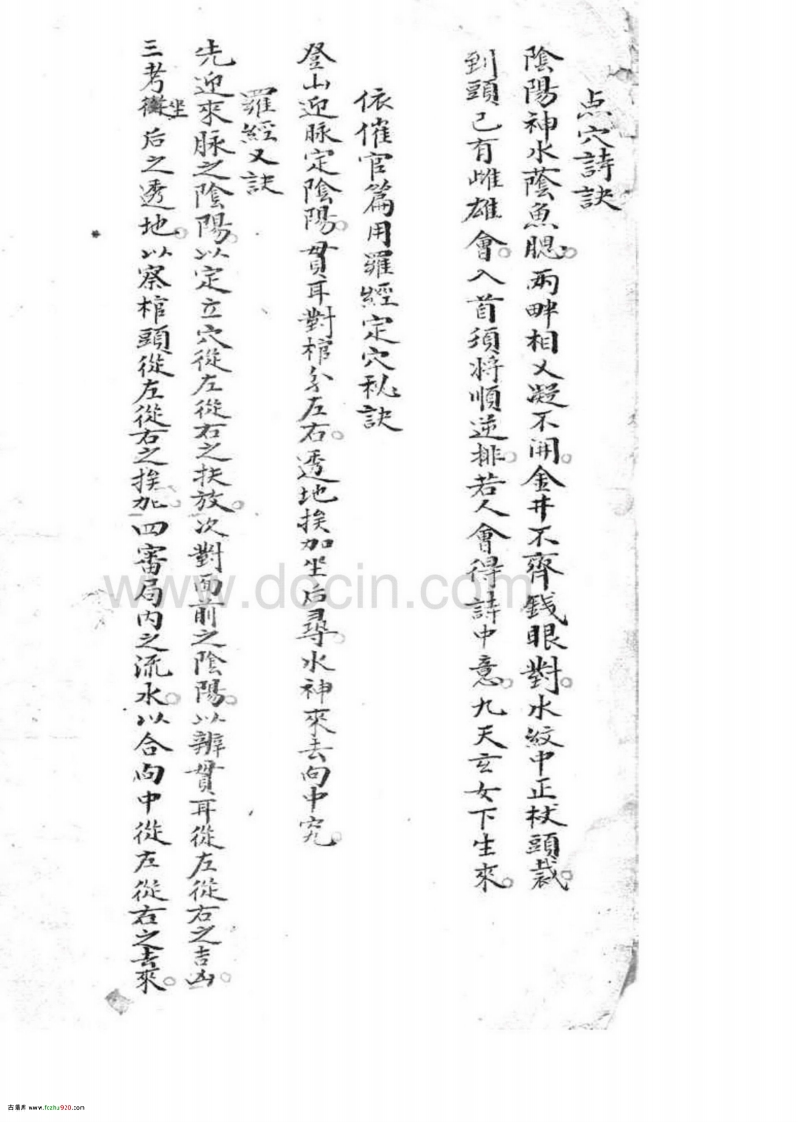 点穴詩訣
陰陽神水蔭魚腮。兩畔相乂凝不開。金井不齊錢眼對。水紋中正杖頭裁。
到頭已有雌雄會。入首須將順逆排。若人會得詩中意。九天玄女下生來。
依催官篇用羅經定穴秘訣
登山迎脉定陰陽。貫耳對棺分左右。透地挨加坐后尋。水神來去向中究。
羅經又訣
先迎來脉之陰陽。以定立穴從左從右之扶放。次對面前之陰陽。以辨貫耳從左從右之吉凶。
三考坐后之透地。以察棺頭從左從右之挨加。四審局內之流水。以合向中從左從右之去來。
www.docin.com
古易库 www.fczhu920.com